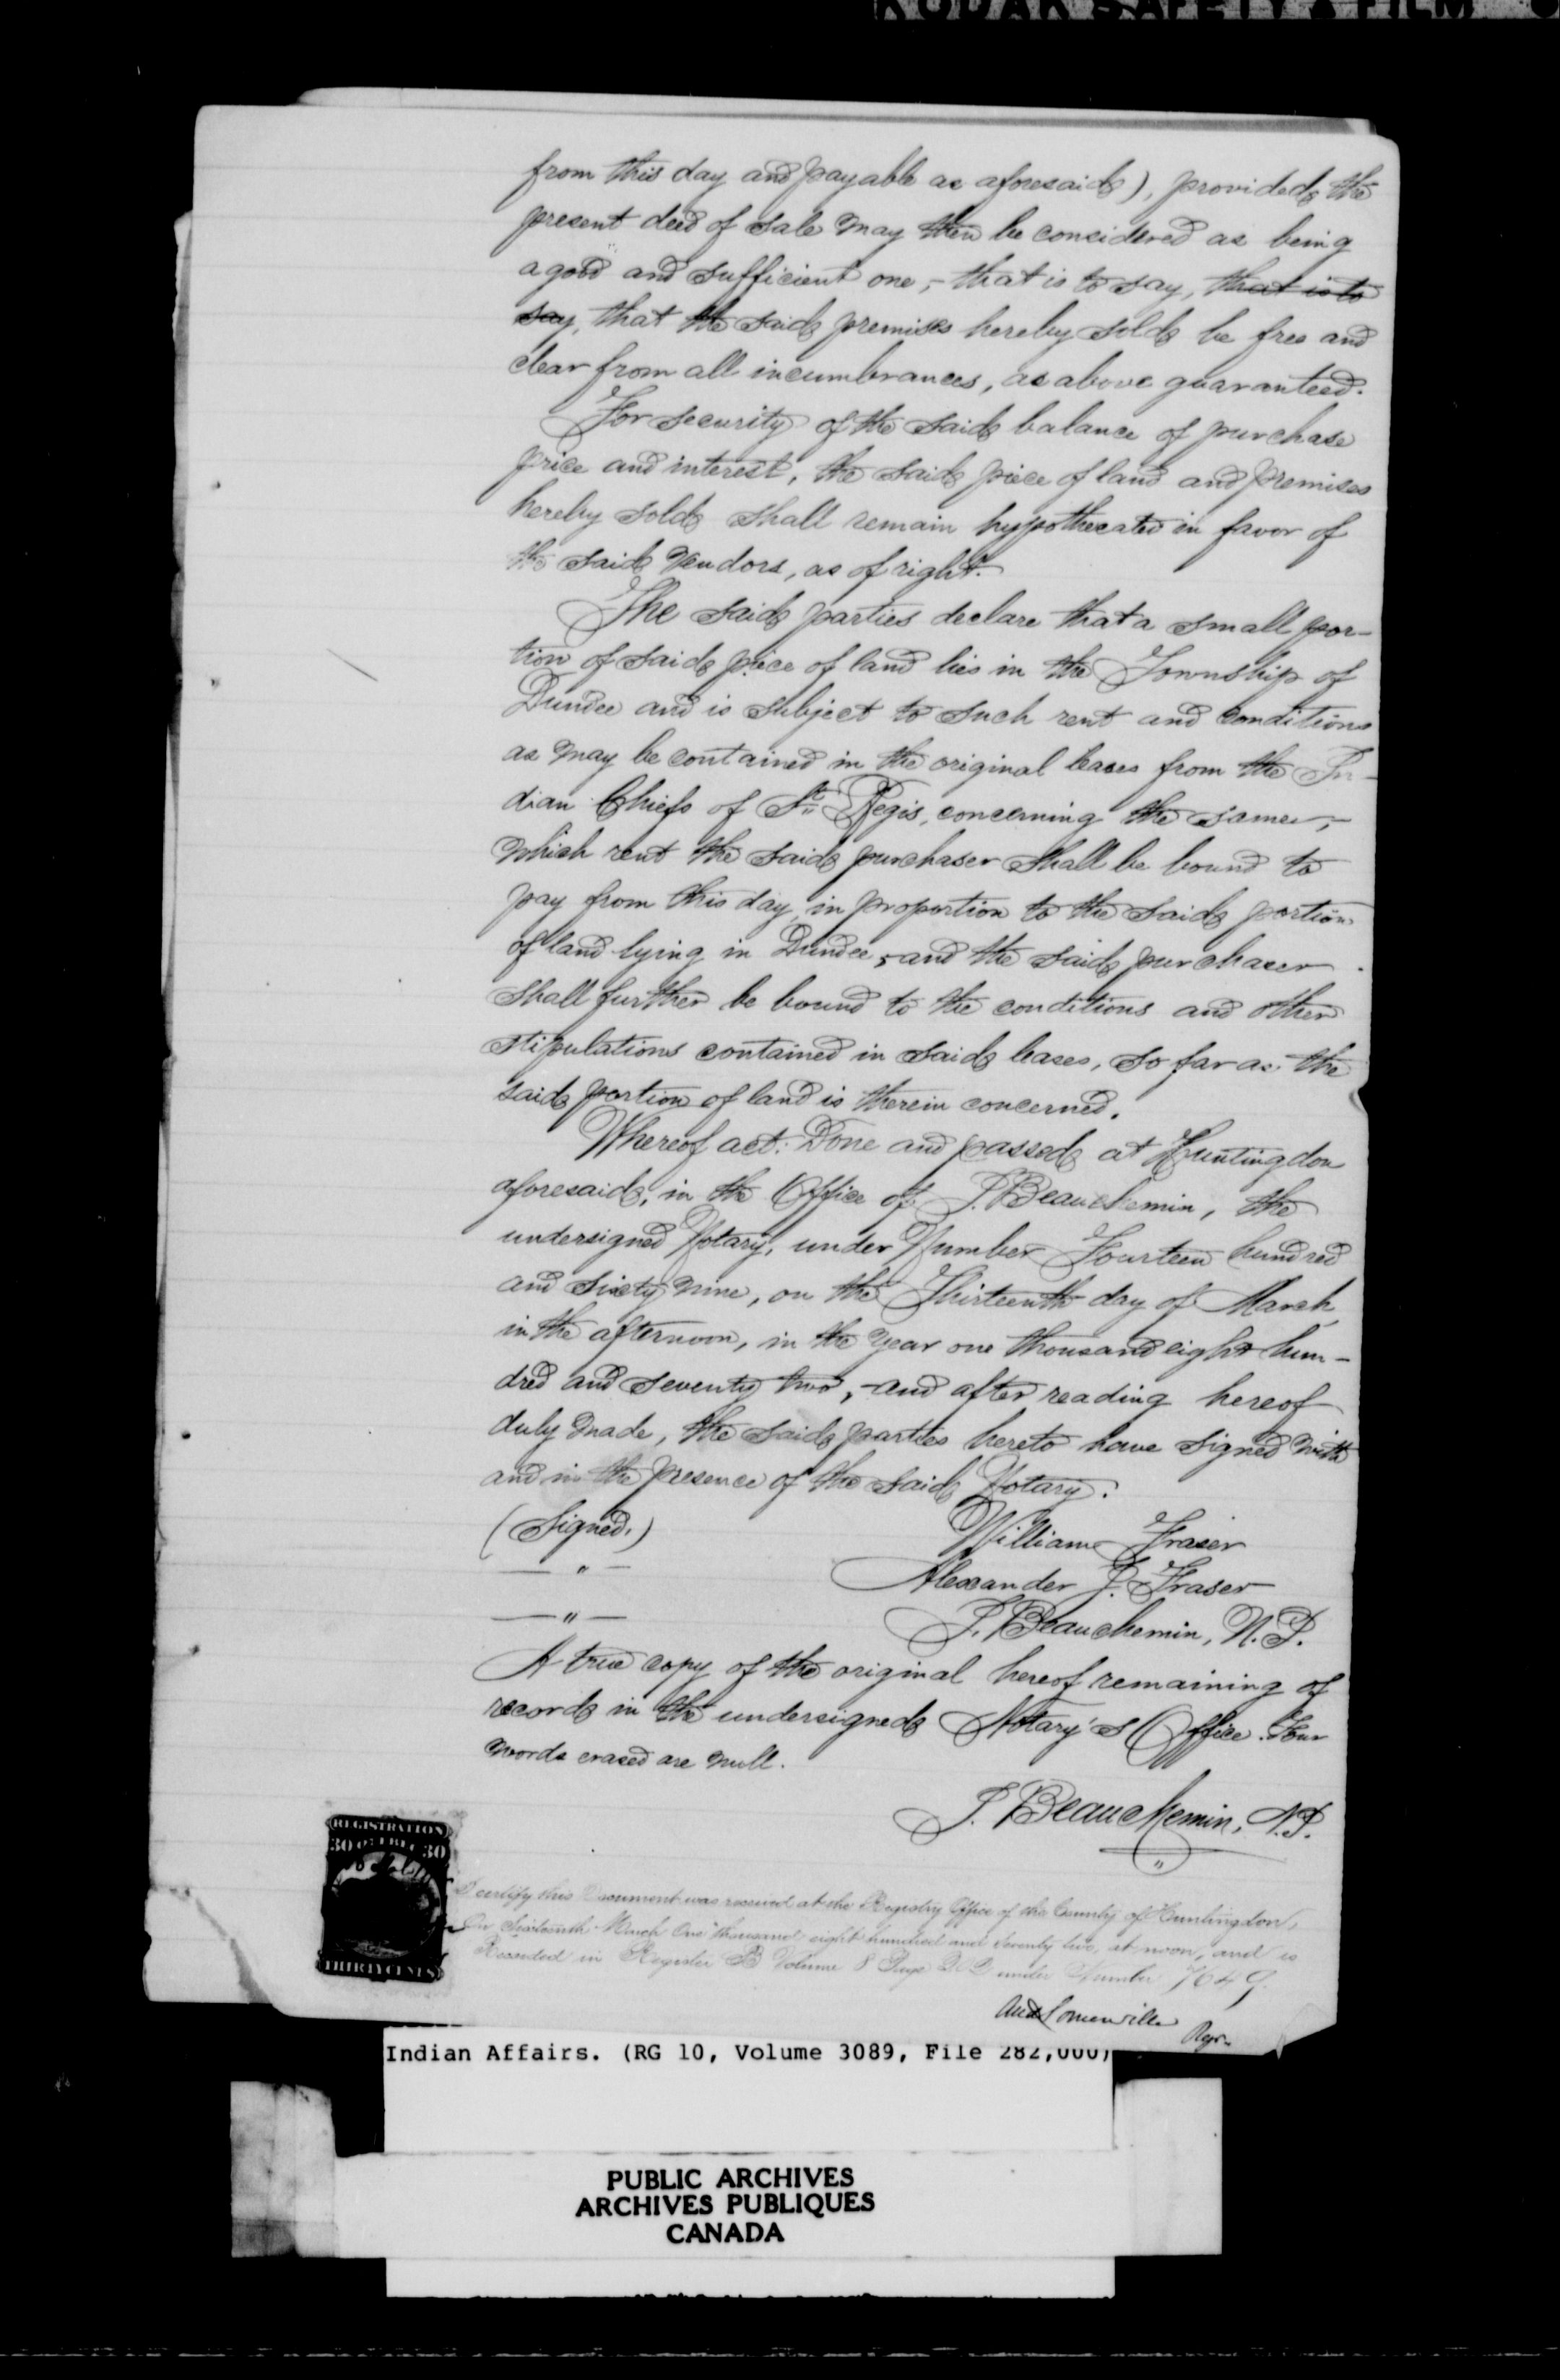 KODAK SAFETY FILM
from this day and payable as aforesaid), provided the
present deed of sale may then be considered as being
a good and sufficient one, - that is to say, that is to
say, that the said premises hereby sold be free and
clear from all incumbrances, as above guaranteed.
For security of the said balance of purchase
price and interest, the said piece of land and premises
hereby sold shall remain hypothecated in favor of
the said Vendors, as of right.
The said parties declare that a small por-
tion of said piece of land lies in the Township of
Dundee and is subject to such rent and conditions
as may be contained in the original leases from the In-
dian Chiefs of St. Regis, concerning the same, -
which rent the said purchaser shall be bound to
pay from this day, in proportion to the said portion
of land lying in Dundee, and the said purchaser
shall further be bound to the conditions and other
stipulations contained in said leases, so far as the
said portion of land is therein concerned.
Whereof act: Done and passed at Huntingdon
aforesaid, in the Office of P. Beauchemin, the
undersigned Notary, under Number Fourteen hundred
and sixty nine, on the Thirteenth day of March,
in the afternoon, in the year one thousand eight hun-
dred and seventy two, - and after reading hereof
duly made, the said parties hereto have signed with
and in the presence of the said Notary.
(Signed.) William Fraser
— " — Alexander J. Fraser
— " — P. Beauchemin, N.P.
A true copy of the original hereof remaining of
record in the undersigned Notary's Office. Four
words erased are null.
P. Beauchemin, N.P.
REGISTRATION
30 QUEBEC 30
THIRTY CENTS
I certify this Document was received at the Registry Office of the County of Huntingdon,
On Sixteenth March One thousand eight hundred and seventy two, at noon, and is
Recorded in Register B Volume 8 Page under Number 7649.
And Somerville
Regr.
Indian Affairs. (RG 10, Volume 3089, File 282,000)
PUBLIC ARCHIVES
ARCHIVES PUBLIQUES
CANADA